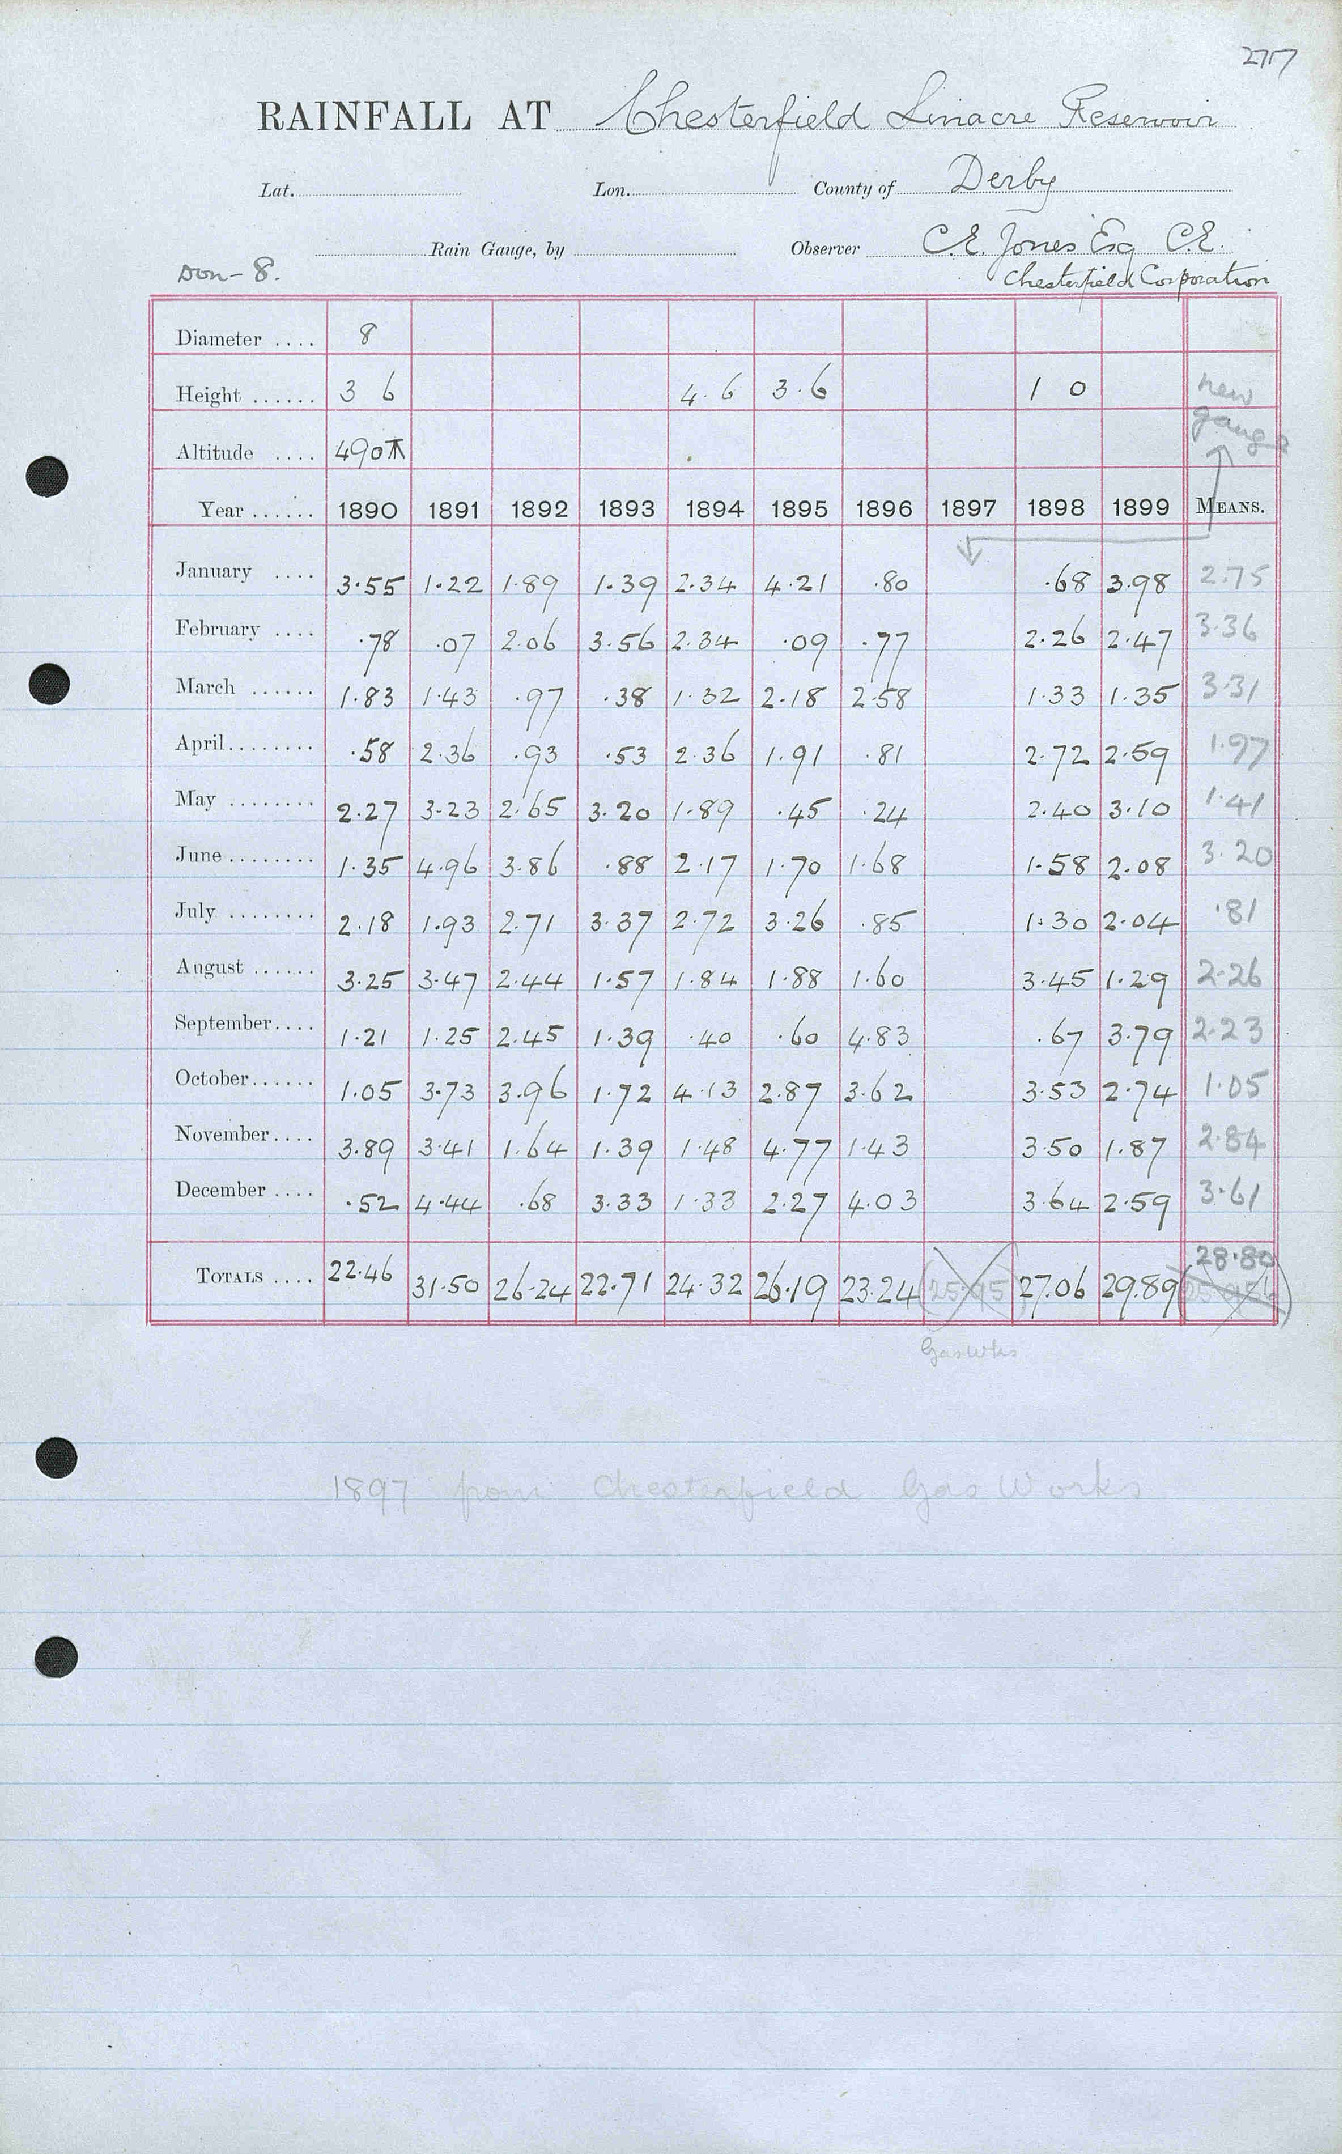 277
RAINFALL AT Chesterfield Linacre Reservoir
Lat. Lon. County of Derby
Rain Gauge, by Observer C.E. Jones Esq C.E.
Don - 8. Chesterfield Corporation
Diameter .... 8
Height ...... 3 6 4. 6 3. 6 1 0 new
gauge
Altitude .... 490
Year ...... 1890 1891 1892 1893 1894 1895 1896 1897 1898 1899 MEANS.
January .... 3.55 1.22 1.89 1.39 2.34 4.21 .80 .68 3.98 2.75
February .... .78 .07 2.06 3.56 2.34 .09 .77 2.26 2.47 3.36
March ...... 1.83 1.43 .97 .38 1.32 2.18 2.58 1.33 1.35 3.31
April........ .58 2.36 .93 .53 2.36 1.91 .81 2.72 2.59 1.97
May ........ 2.27 3.23 2.65 3.20 1.89 .45 .24 2.40 3.10 1.41
June ........ 1.35 4.96 3.86 .88 2.17 1.70 1.68 1.58 2.08 3.20
July ........ 2.18 1.93 2.71 3.37 2.72 3.26 .85 1.30 2.04 .81
August ...... 3.25 3.47 2.44 1.57 1.84 1.88 1.60 3.45 1.29 2.26
September.... 1.21 1.25 2.45 1.39 .40 .60 4.83 .67 3.79 2.23
October...... 1.05 3.73 3.96 1.72 4.13 2.87 3.62 3.53 2.74 1.05
November.... 3.89 3.41 1.64 1.39 1.48 4.77 1.43 3.50 1.87 2.84
December .... .52 4.44 .68 3.33 1.33 2.27 4.03 3.64 2.59 3.61
TOTALS .... 22.46 31.50 26.24 22.71 24.32 26.19 23.24 (25.95) 27.06 29.89 28.80
Gas Wks
1897 from Chesterfield Gas Works